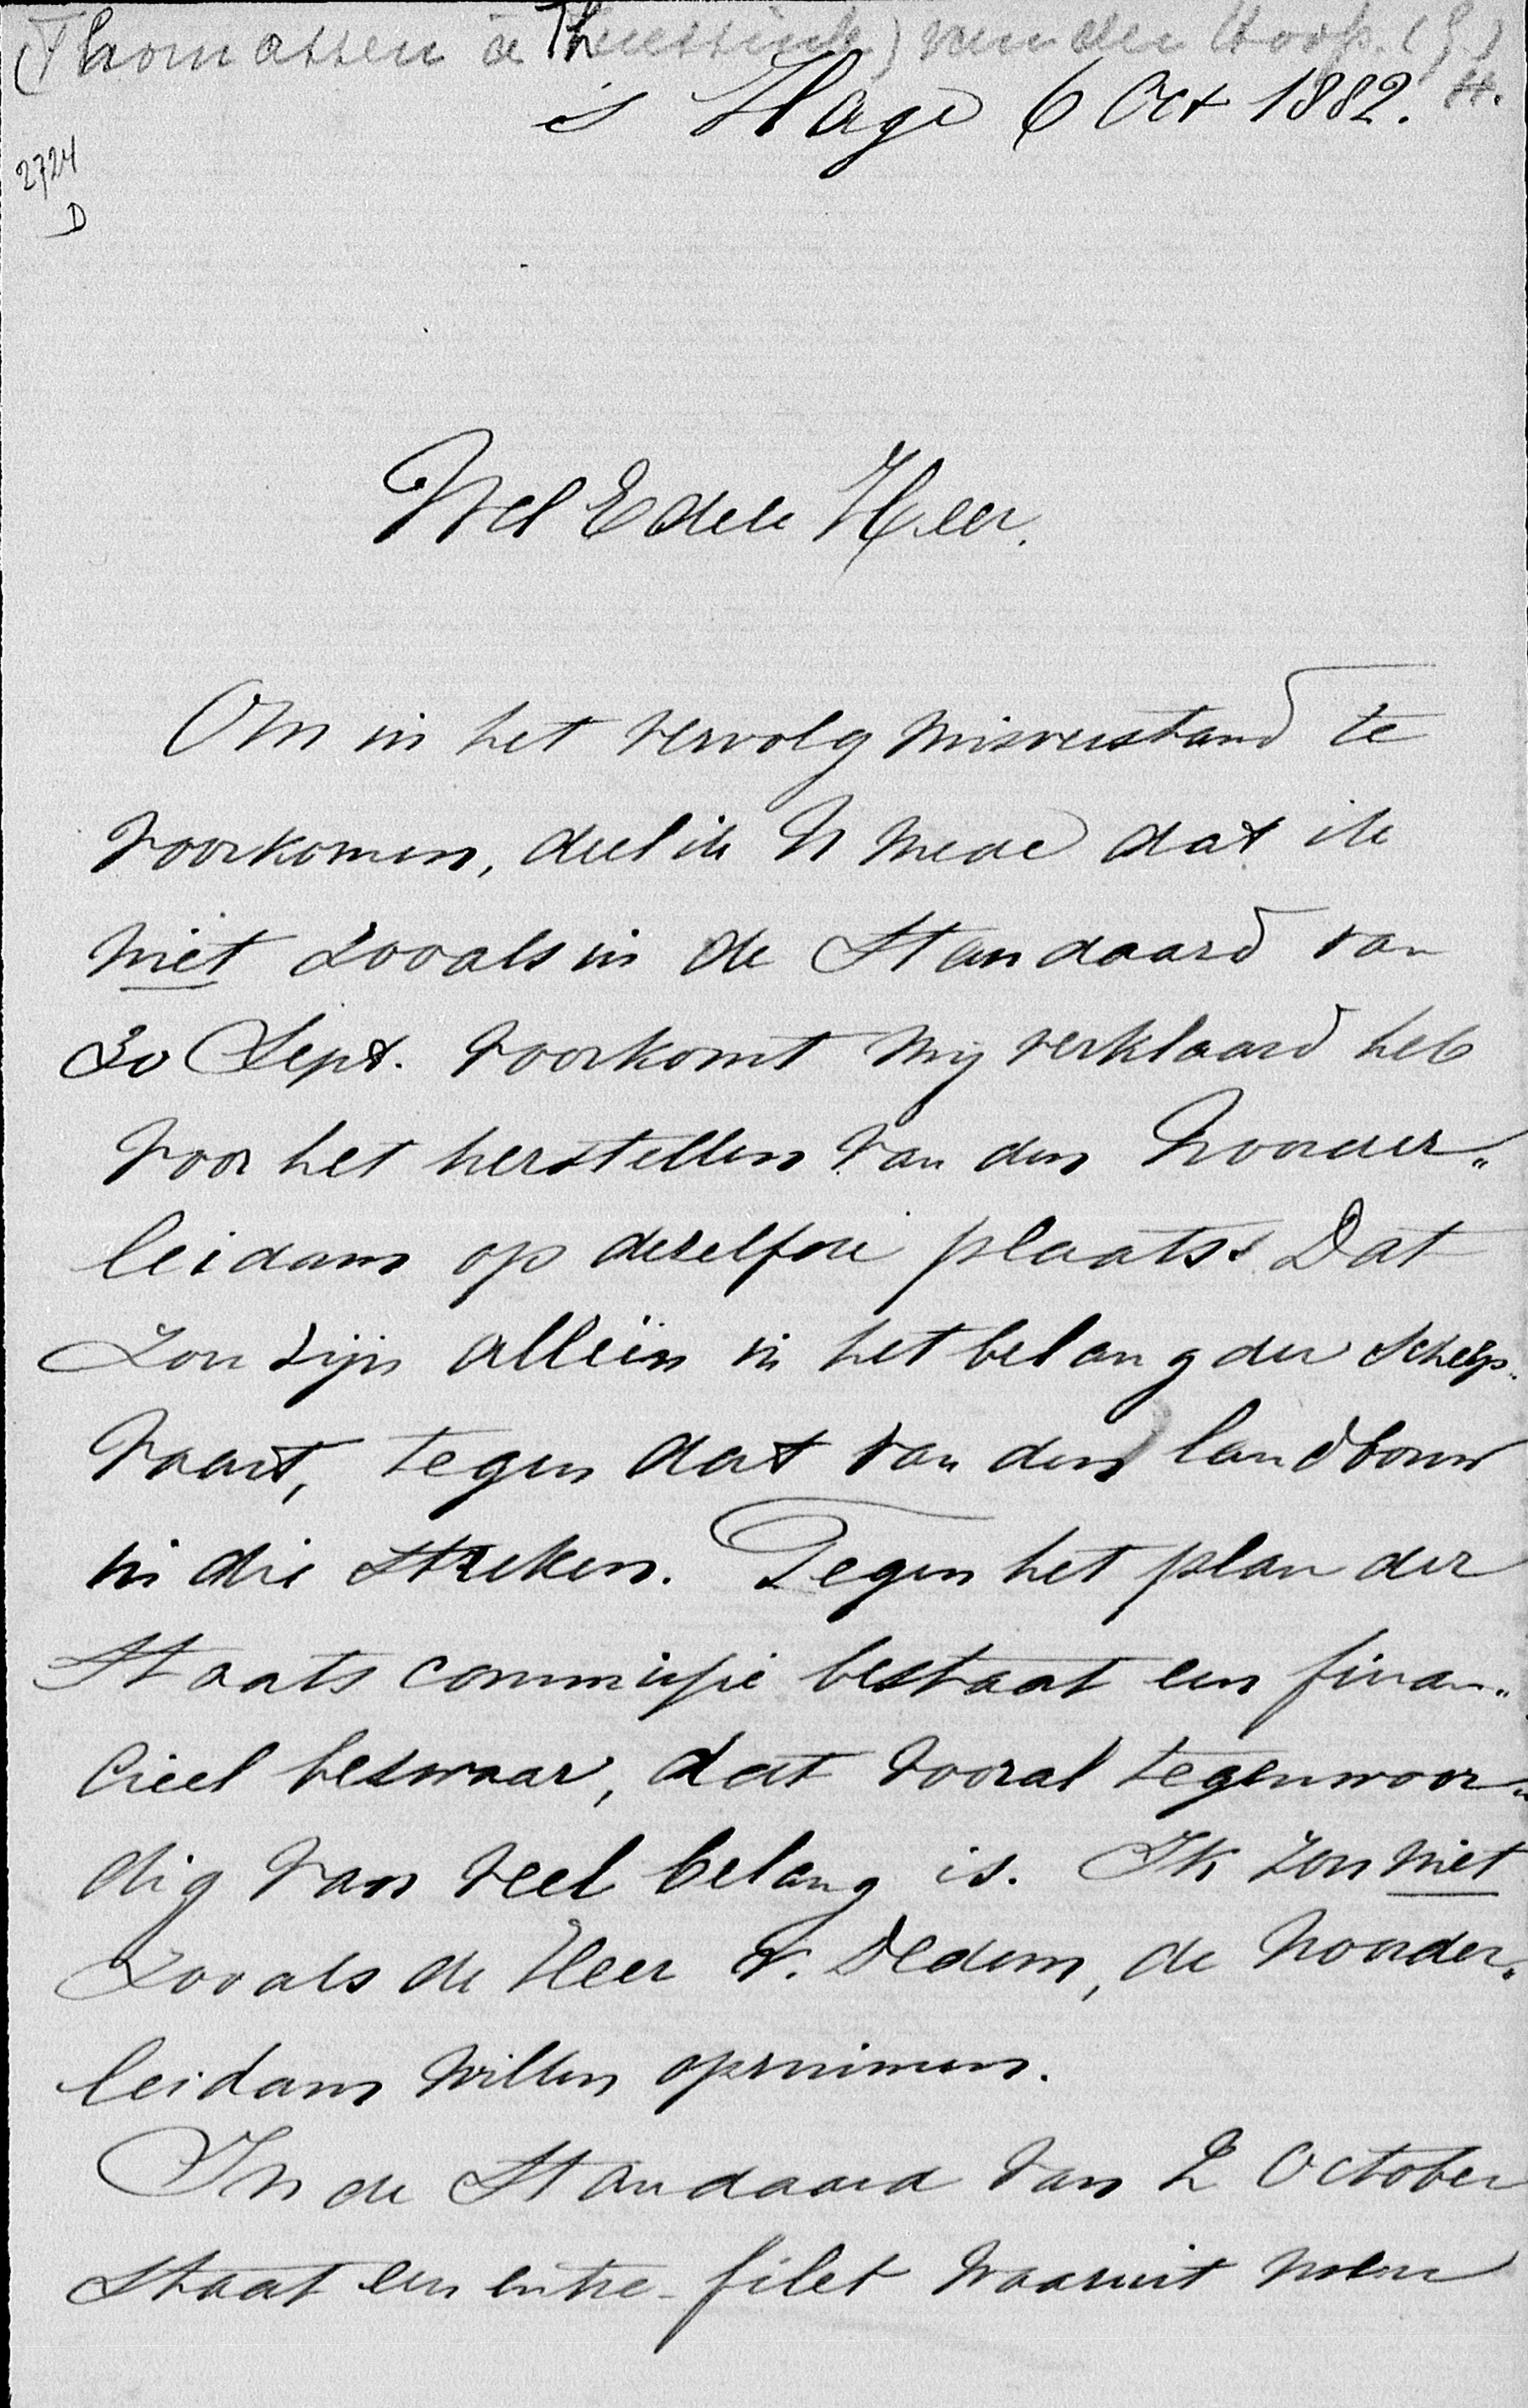 (Thomassen à Theussink) van der Hoop. (E.)
H.
's Hage 6 Oct 1882.
2724
D
Wel Edele Heer.
Om in het vervolg misverstand te
voorkomen, deel ik U mede dat ik
niet zooals in de Standaard van
30 Sept. voorkomt mij verklaard heb
voor het herstellen van den Noorder„
leidam op dezelfde plaats. Dat
zou zijn alleen in het belang der scheep„
vaart, tegen dat van den landbouw
in die streken. Tegen het plan der
Staatscommissie bestaat een finan„
cieel bezwaar, dat vooral tegenwoor„
dig van veel belang is. Ik zou niet
zooals de Heer v. Dedem, de Noorder„
leidam willen opruimen.
In de Standaard van 2 October
staat een entre-filet waaruit men